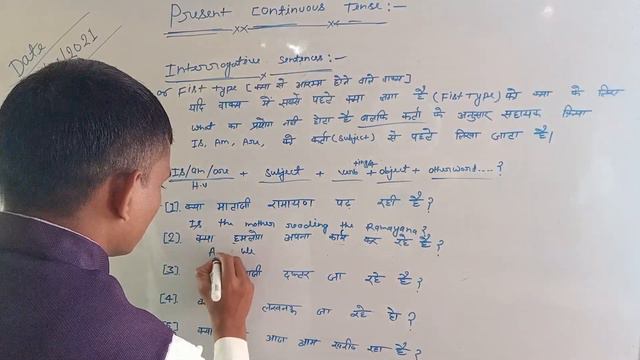 Present Continuous Tense :-
Date
2021
Interrogative Sentences :-
or First Type [क्या से आरम्भ होने वाले वाक्य]
यदि वाक्य में सबसे पहले क्या लगा है (Fist Type) को क्या के लिए
what का प्रयोग नहीं होता है बल्कि कर्ता के अनुसार सहायक क्रिया
Is, Am, Are, को कर्ता (Subject) से पहले लिखा जाता है।
Is/am/are + subject + verb + ing + object + other word....?
H.V
[1]. क्या माताजी रामायण पढ़ रही है?
Is the mother reading the Ramayana?
[2]. क्या हमलोग अपना कार्य कर रहे है?
A We
[3] डाक्टर जा रहे है?
[4] लखनऊ जा रहे हो?
क्या आम खरीद रहा है?